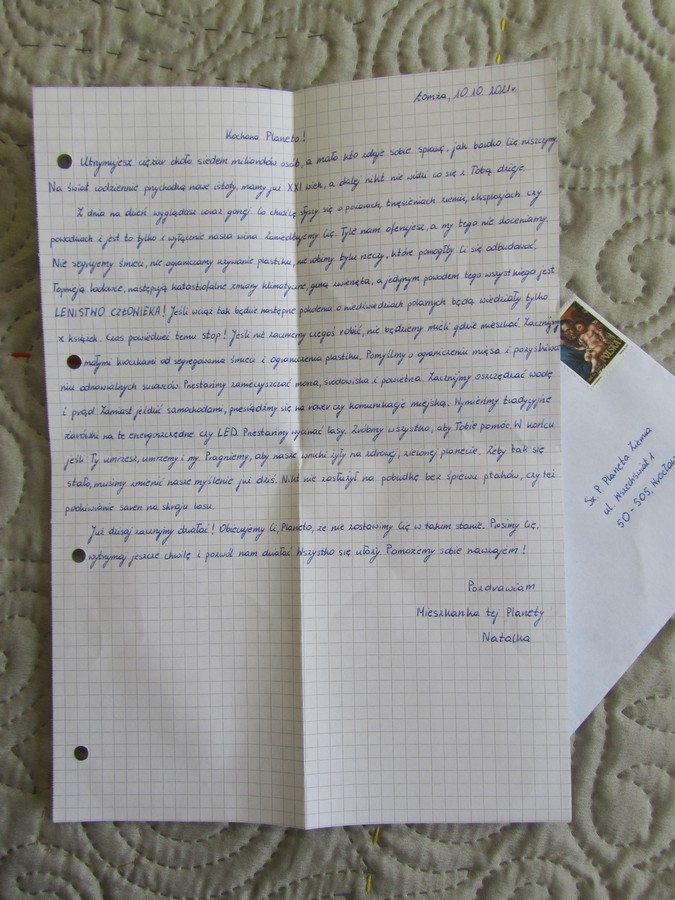 Łomża, 10.10.2021r.
Kochana Planeto!
Utrzymujesz ciężar około siedem miliardów osób, a mało kto zdaje sobie sprawę, jak bardzo Cię niszczymy.
Na świat codziennie przychodzą nowe istoty, mamy już XXI wiek, a dalej nikt nie widzi co się z Tobą dzieje.
Z dnia na dzień wyglądasz coraz gorzej. Co chwilę słyszy się o pożarach, trzęsieniach ziemi, eksplozjach czy
powodziach i jest to tylko i wyłącznie nasza wina. Zaniedbujemy Cię. Tyle nam oferujesz, a my tego nie doceniamy.
Nie segregujemy śmieci, nie ograniczamy używania plastiku, nie robimy tylu rzeczy, które pomogłyby Ci się odbudować.
Topnieją lodowce, następują katastrofalne zmiany klimatyczne, giną zwierzęta, a jedynym powodem tego wszystkiego jest
LENISTWO CZŁOWIEKA! Jeśli wciąż tak będzie następne pokolenia o niedźwiedziach polarnych będą wiedziały tylko
z książek. Czas powiedzieć temu stop! Jeśli nie zaczniemy czegoś robić, nie będziemy mieli gdzie mieszkać. Zacznijmy
małymi kroczkami od segregowania śmieci i ograniczenia plastiku. Pomyślmy o ograniczeniu mięsa i pozyskiwa-
niu odnawialnych surowców. Przestańmy zanieczyszczać morza, środowiska i powietrza. Zacznijmy oszczędzać wodę
i prąd. Zamiast jeździć samochodami, przesiądźmy się na rower czy komunikację miejską. Wymieńmy tradycyjne
żarówki na te energooszczędne czy LED. Przestańmy wycinać lasy. Zróbmy wszystko, aby Tobie pomóc. W końcu
jeśli Ty umrzesz, umrzemy i my. Pragniemy, aby nasze wnuki żyły na zdrowej, zielonej planecie. Żeby tak się
stało, musimy zmienić nasze myślenie już dziś. Nikt nie zasłużył na pobudkę bez śpiewu ptaków, czy też
podziwianie saren na skraju lasu.
Już dzisiaj zacznijmy działać! Obiecujemy Ci, Planeto, że nie zostawimy Cię w takim stanie. Prosimy Cię,
wytrzymaj jeszcze chwilę i pozwól nam działać. Wszystko się ułoży. Pomożemy sobie nawzajem!
Pozdrawiam
Mieszkanka tej Planety
Natalka
Sz. P. Planeta Ziemia
ul. Wszechświat 1
50-505, Wrocław